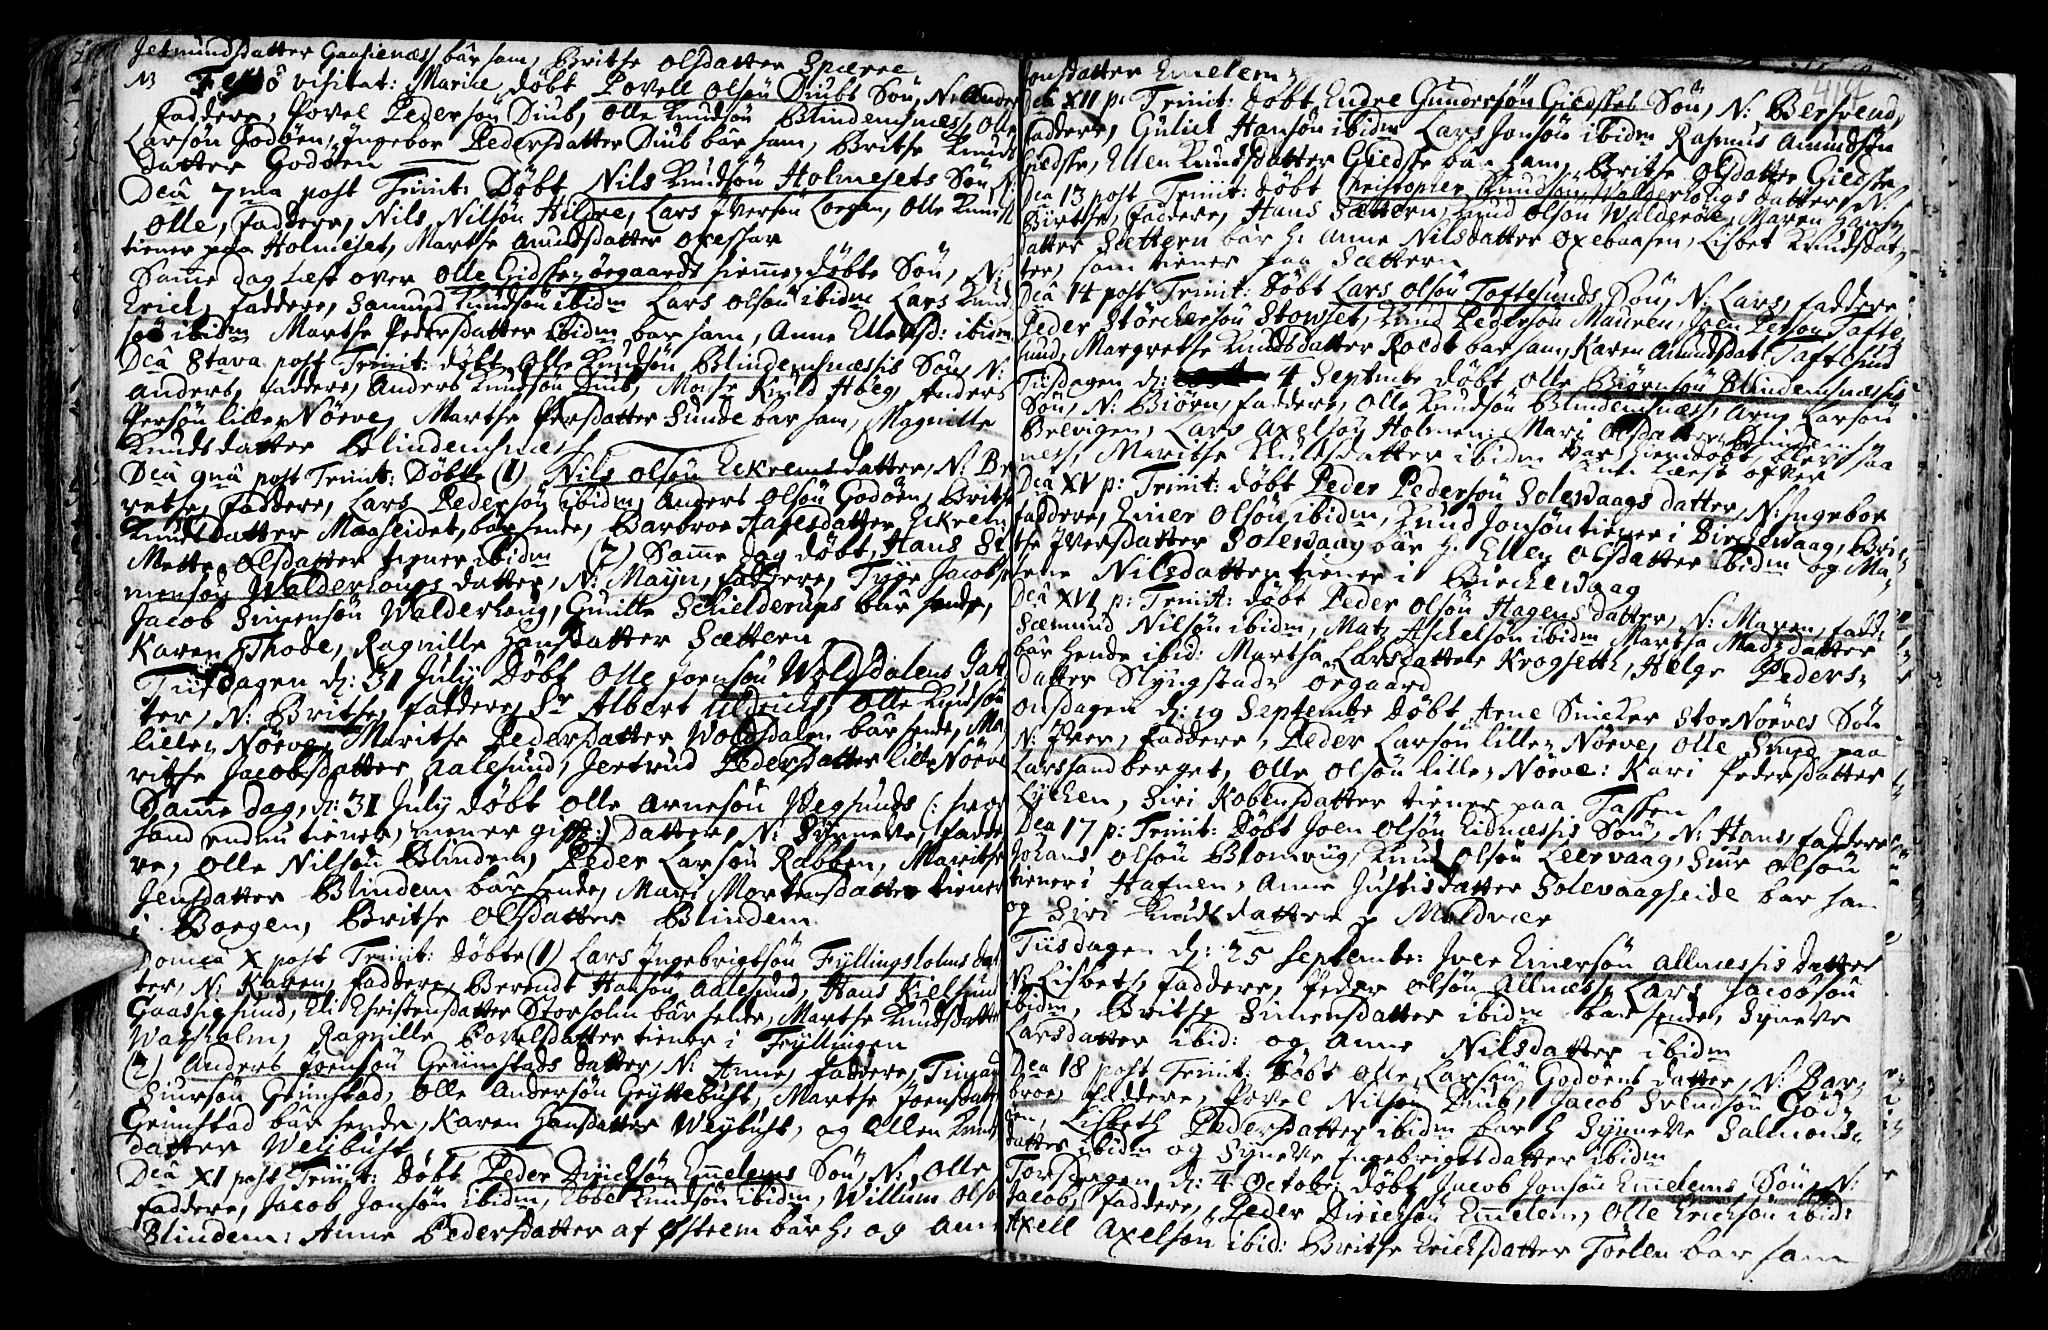 Jetmundsdatter Gaasienæss bär ham, Brithe Olsdatter Spærre
NB Festo visitat: Mariæ döbt Povell Olsön Diubs Sön, N: Ander
faddere, Povel Pedersön Diub, Olle Knudsön Blindemsnæss, Olle
Larsön Godöen, Jngebor Pedersdatter Diub bär ham, Brithe Knuds
datter Godöen
Dcâ 7ma post Trinit: Döbt Nils Knudsön Holmesets Sön, N:
Olle, faddere, Nils Nilsön Hildre, Lars Jversön Longva, Olle Knuds
tiener paa Holmeset, Marthe Amundsdatter
Samme dag Lest over Olle Gidskes-örgaards hiemmedöbte Sön, N:
Erich, faddere, Samund Knudsön ibidm Lars Olsön ibidm Lars Knud
sön ibidm Marthe Pedersdatter ibidm bar ham, Anne Ellevsd: ibidm
Dcâ 8tava post Trinit: döbt Olle Knudsön Blindemsnæssis Sön, N:
Anders, faddere, Anders Knudsön Diub, Mons Knud Höeg, Anders
Persön lille-Nörve, Marthe Persdatter Sunde bar ham, Magnille
Knudsdatter Blindemsnæss
Dcâ 9nâ post Trinit: Döbte (1) Nils Olsön Eckrems datter, N: Be
rethe, faddere, Lars Pedersön ibidm, Anders Olsön Godöen, Brithe
Knudsdatter Maaseidet, bär hende, Barbroe Hagesdatter Eckrem
Mette Olsdatter tiener ibidm (2) Samme dag döbt, Hans Si
monsön Walderhougs datter, N: Mayn, faddere, Tyge Jacobs
Jacob Simensön Walderhoug, Gunille Schielderups bär hende,
Karen Thode, Ragnille Hansdatter Sættern
Tiisdagen d: 31 July Döbt Olle Joensön Woldsdalens Dat
ter, N: Brithe, faddere, Sr Albert Uldrich, Olle Knudsön
lille-Nörve, Marithe Pedersdatter Woldsdalen bär hende, Ma
rithe Jacobsdatter Aalesund, Jertrud Pedersdatter lille Nörve
Samme dag, d: 31 July döbt Olle Arnesön Vegsunds (: hvor
hand endnu tiener, men er gift :) datter, N: Synneve, fadde
re, Olle Nilsön Blindem, Peder Larsön Rabben, Marithe
Jensdatter Blindem bär hende, Mari Mortensdatter tiener
i Borgen, Brithe Olsdatter Blindem
Domca X post Trinit: Döbte (1) Lars Jngebrigtsön Fyllingsholms dat
ter, N: Karen, faddere, Berendt Hansön Aalesund, Hans Kielsund
Gaasigsund, Eli Christensdatter Storholm bär hende, Marthe Knudsdatter
Watsholm, Ragnille Povelsdatter tiener i Fyllingen
(2) Anders Joensön Grimstads datter, N: Anne, faddere, Timan
Siursön Grimstad, Olle Andersön Gryttebust, Marthe Joensdatt
Grimstad bär hende, Karen Hansdatter Weybust, og Ellen Knuds
datter Weibust
Dcâ XI post Trinit: Döbt Peder Dirichsön Emmelems Sön, N: Olle
faddere, Jacob Jonsön ibidm, Ebbe Knudsön ibidm, Willum Olsö
Blindem: Anne Pedersdatter af Östrem bär h: og Ann
Jonsdatter Emelem
414
Dca XII p: Trinit: döbt Endre Gundersön Giedskes Sön, N: Bersvend,
faddere, Gulich Hansön ibidm Lars Jonsön ibidm Rasmus Amundsön
Giedske, Ellen Knudsdatter Giedske bär ham, Brithe Olsdatter Giedske
Dca 13 post Trinit: döbt Christopher Knudsön Walderhougs datter, N:
Birthe, faddere, Hans Sættern, Knud Olsön Walderöe, Maren Hans
datter Sættern bär h: Anne Nilsdatter Oxebaasen, Lisbet Knudsdat
ter, som tiener paa Sættern
Dcâ 14 post Trinit: Döbt Lars Olsön Toftesunds Sön, N: Lars, faddere
Peder Störchersön Stowset, Knud Pedersön Mauren, Joen Persön Tofte
sund, Margrethe Knudsdatter Roald bar ham, Karen Amundsdat: Toftesund
Tiisdagen d: 4 Septembr döbt Olle Biörnsön Blindemsnæssis
Sön, N: Biörn, faddere, Olle Knudsön Blindemsnæss, Arne Larsön
Brevigen, Lars Axelsön Holmen: Mari Olsdatter Blindems
næss, Marithe Knudsdatter ibidm var hiemdöbt, blev saa
kun læst ofver
Dcâ XV p: Trinit: döbt Peder Pedersön Solevaags datter, N: Jngebor
faddere, Einer Olsön ibidm, Knud Jonsön tiener i Birchewaag, Bri
the Jversdatter Solewaag bär h. Ellen Olsdatter ibidm og Ma
lene Nilsdatter tiener i Birchewaag
Dca XVI p: Trinit: döbt Peder Olsön Hagens datter, N: Maren, fadd:
Sæmund Nilsön ibidm, Matz Aschelsön ibidm Martha Madzdatter
bär hende ibid: Martha Larsdatter Krogseth, Helge Peders
datter Slyngstads orgaard
Onsdagen d: 19 Septembr döbt Arne Snicker StorNörves Sön
N: Jver, faddere, Peder Larsön lille-Nörve, Olle Smed paa
Larssandberget, Olle Olsön lille-Nörve: Kari Pedersdatter
Lychen, Siri Kobensdatter tiener paa Tassen
Dca 17 p: Trinit: Döbt Joen Olsön Eidnæssis Sön, N: Hans, faddere
Johans Olsön Blomvüg, Knud Olsön Leervaag, Siur Olsön
tiener i Hafnen, Anne Justisdatter Solevaagseide bar ham
og Siri Knudsdatter Moldvær
Tiisdagen d: 25 Septembr: Jver Einersön Allnæssis datter
N: Lisbeth, faddere, Peder Olsön Allnæss, Lars Jacobsön
ibidm, Brithe Simensdatter ibidm bar hende, Syneve
Larsdatter ibid: og Anne Nilsdatter ibidm
Dca 18 post Trinit: Döbt Olle Larsön Godöens datter, N: Bar
broe, faddere, Povel Nilsön Diub, Jacob Svendsön Godö
en, Lisbeth Pedersdatter ibidm bar h Synneve Salmons
datter ibidm og Syneve Jngebrigtsdatter ibidm
Torsdagen, d: 4 Octobr, döbt Jacob Jonsön Emelems Sön, N:
Jacob, faddere, Peder Dirichsön Emelem, Olle Erichsön ibid:
Axell Axelsön ibid: Brithe Erichsdatter Törlen bar ham